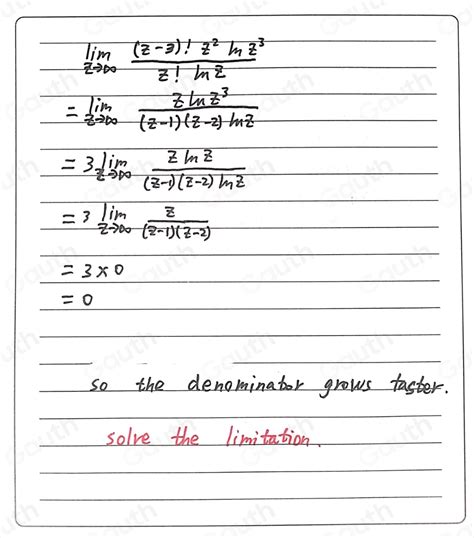 lim z→∞ (z-3)! z² ln z³ / z! ln z
= lim z→∞ z ln z³ / (z-1)(z-2) ln z
= 3 lim z→∞ z ln z / (z-1)(z-2) ln z
= 3 lim z→∞ z / (z-1)(z-2)
= 3 × 0
= 0
so the denominator grows faster.
solve the limitation.